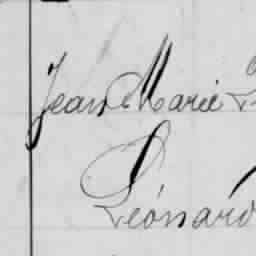 Jean Marie
Léonard